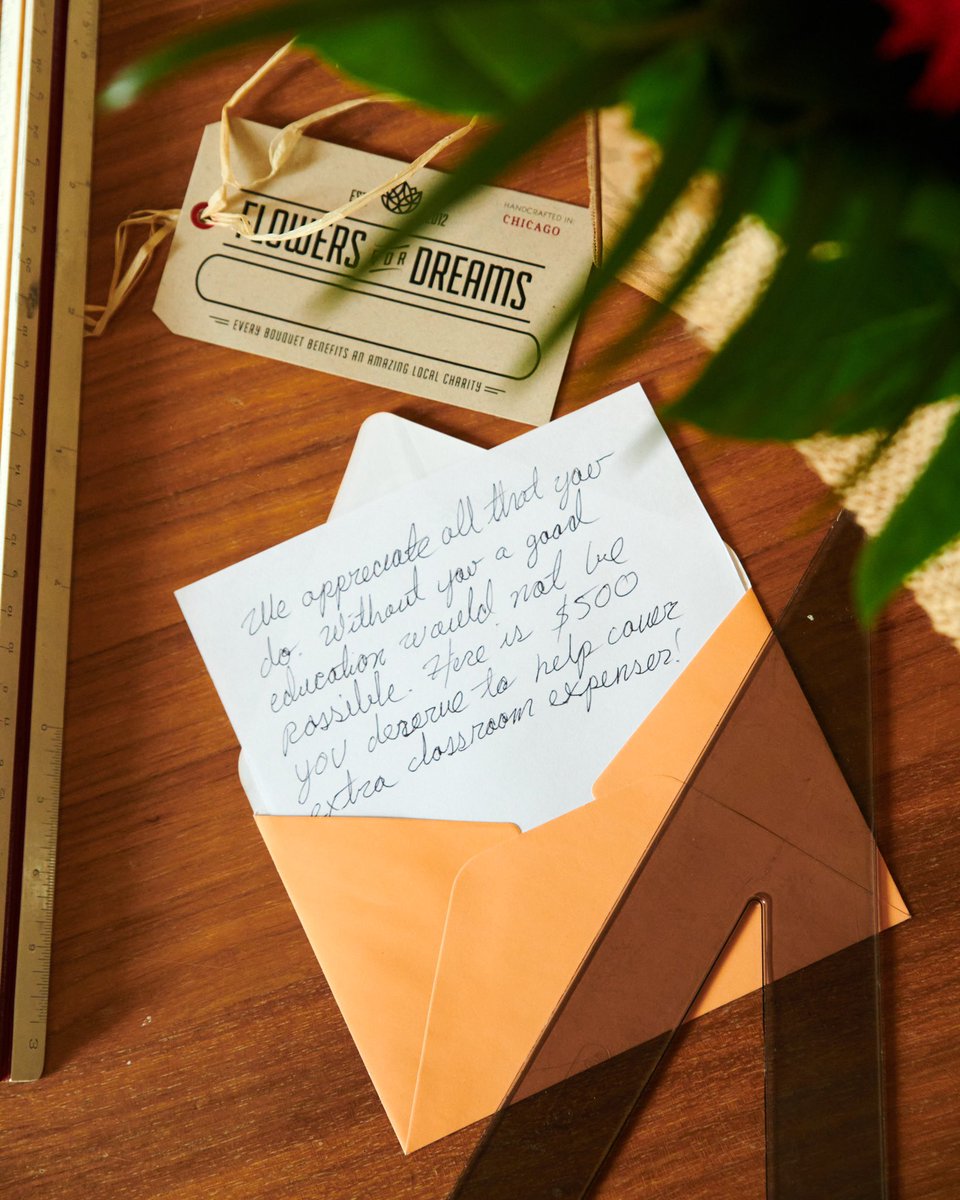 EST 2012
HANDCRAFTED IN:
CHICAGO
FLOWERS FOR DREAMS
EVERY BOUQUET BENEFITS AN AMAZING LOCAL CHARITY
We appreciate all that you
do. Without you a good
education would not be
possible. Here is $500
you deserve to help cover
extra classroom expenses!